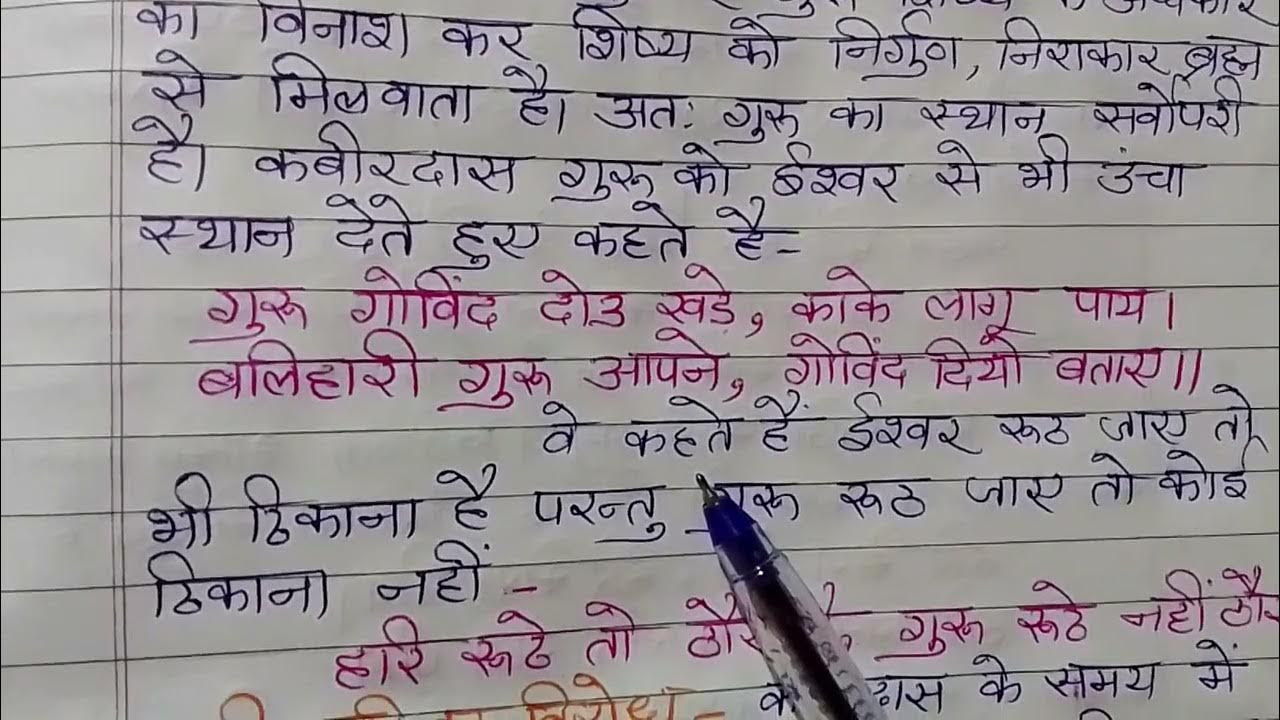 का विनाश कर शिष्य को निर्गुण, निराकार ब्रह्म
से मिलवाता है। अतः गुरू का स्थान सर्वोपरी
है। कबीरदास गुरू को ईश्वर से भी उंचा
स्थान देते हुए कहते है-
गुरू गोविंद दोउ खड़े, काके लागू पाय।
बलिहारी गुरू आपने, गोविंद दियो बताए॥
वे कहते हैं ईश्वर रूठ जाए तो
भी ठिकाना है परन्तु गुरू रूठ जाए तो कोई
ठिकाना नहीं -
हरि रूठे तो गुरू रूठे नहीं ठौर
के समय में